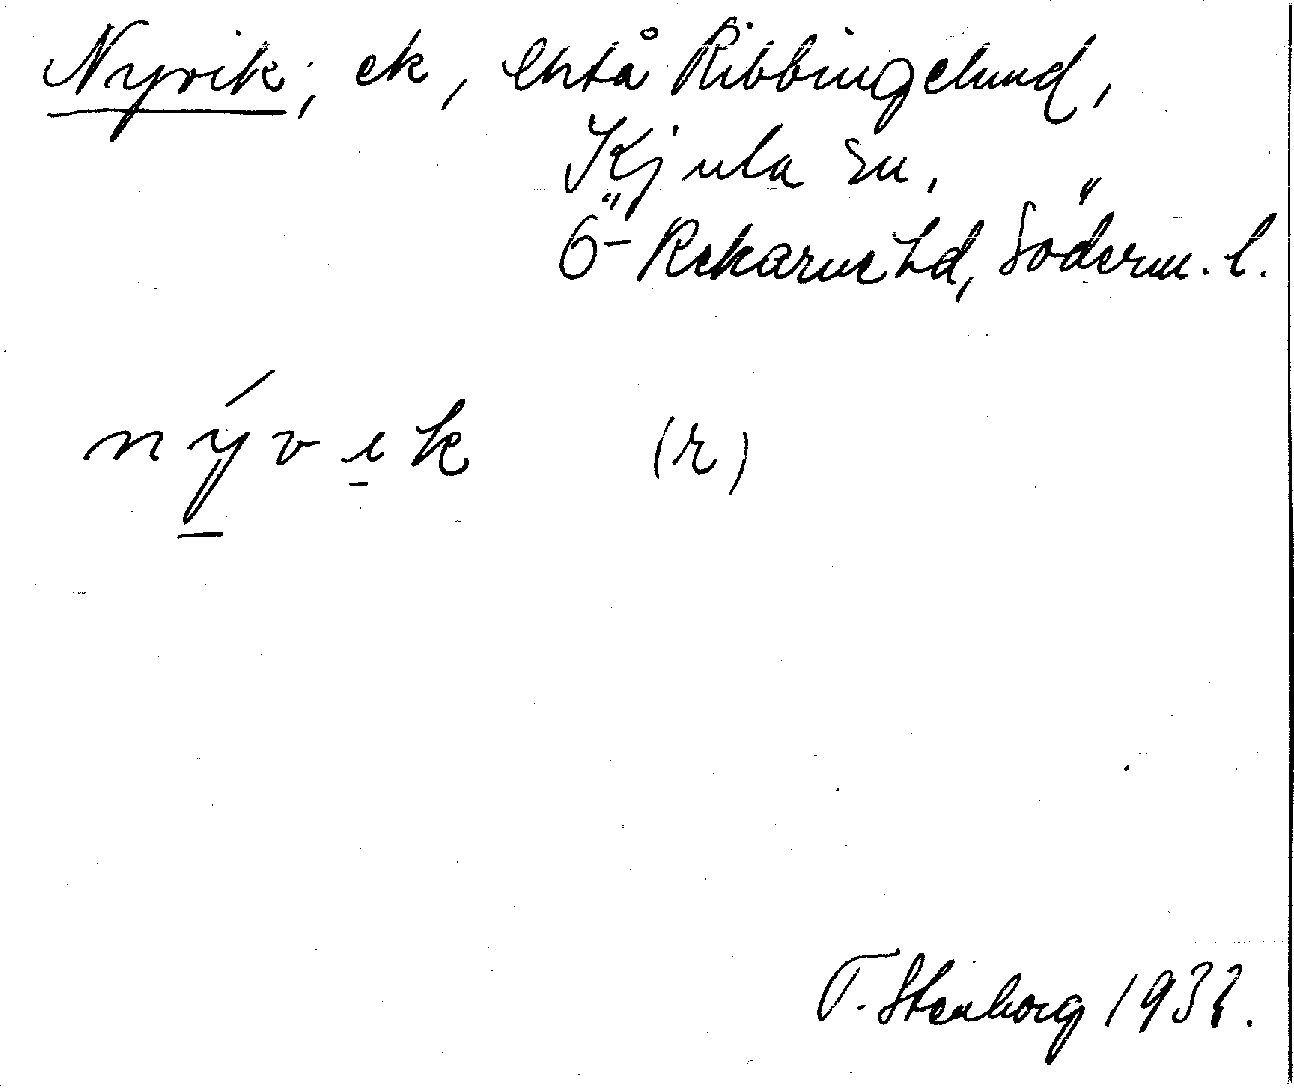 Nyvik, ek, Ektå Ribbingelund,
Kjula sn,
Ö- Rekarne hd, Söderm. l.
nývik (r)
T. Stenborg 1933.